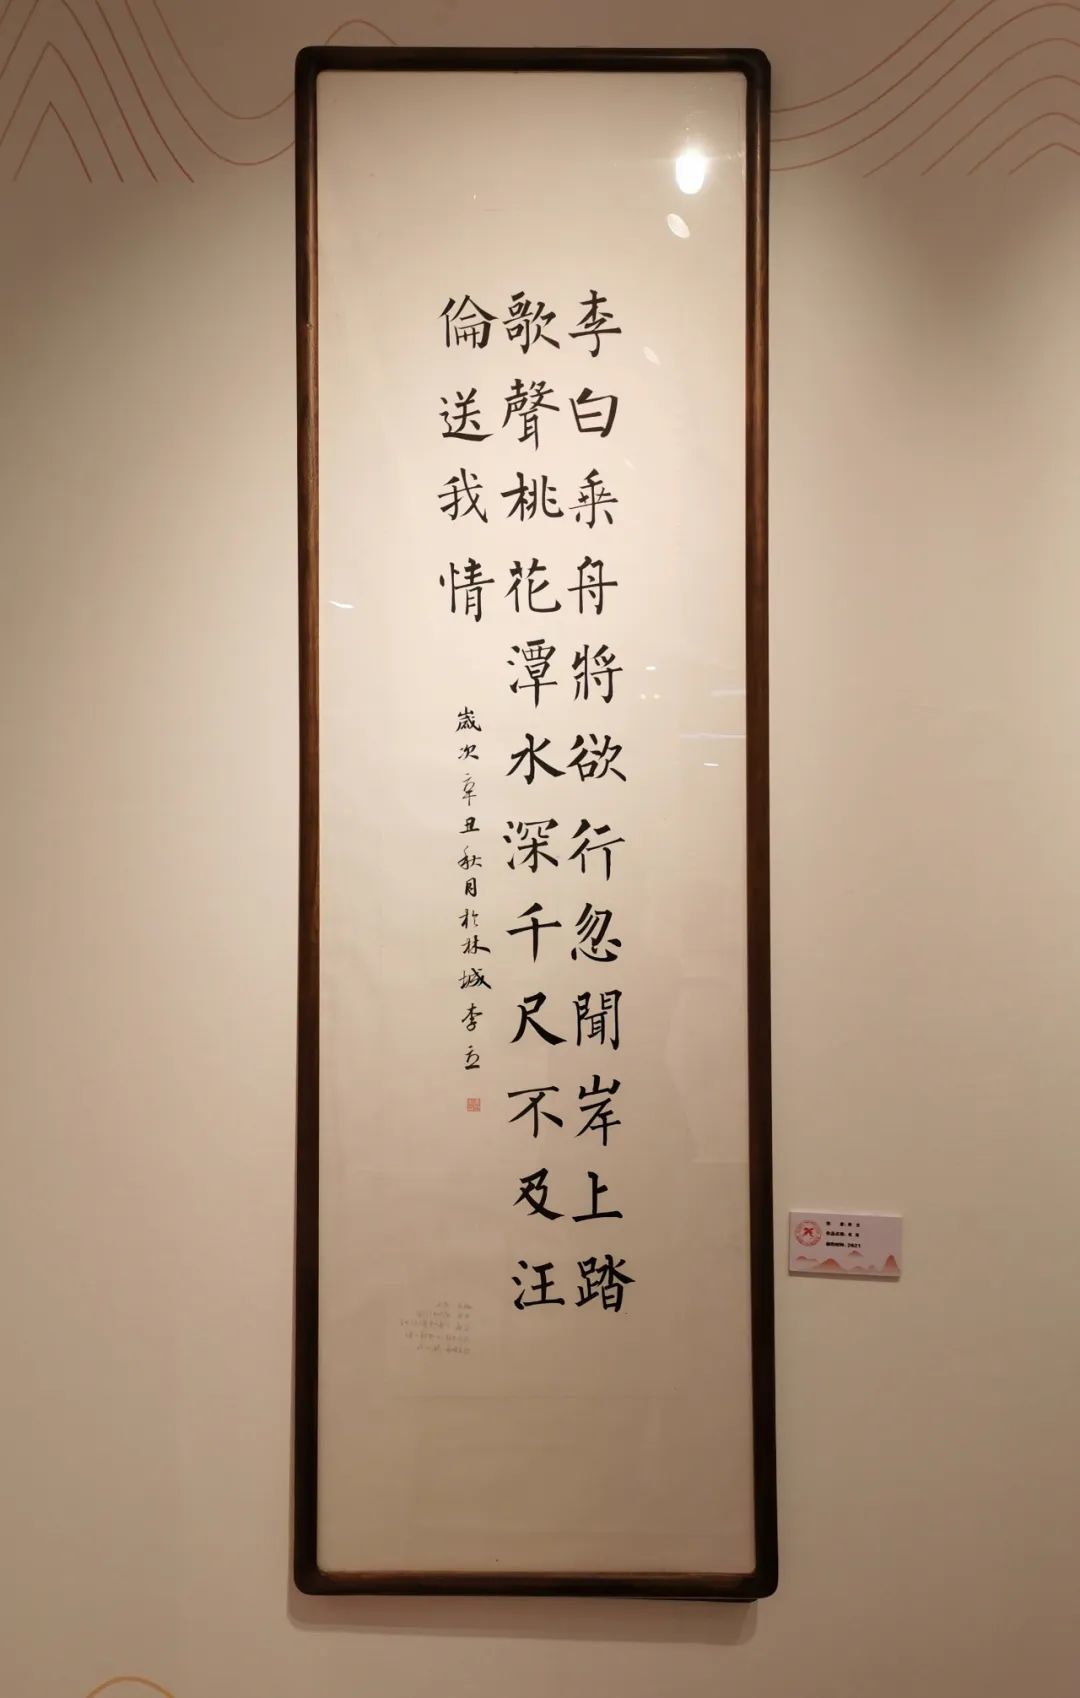 李白乘舟將欲行忽聞岸上踏
歌聲桃花潭水深千尺不及汪
倫送我情
歲次辛丑秋月於林城李立
2021